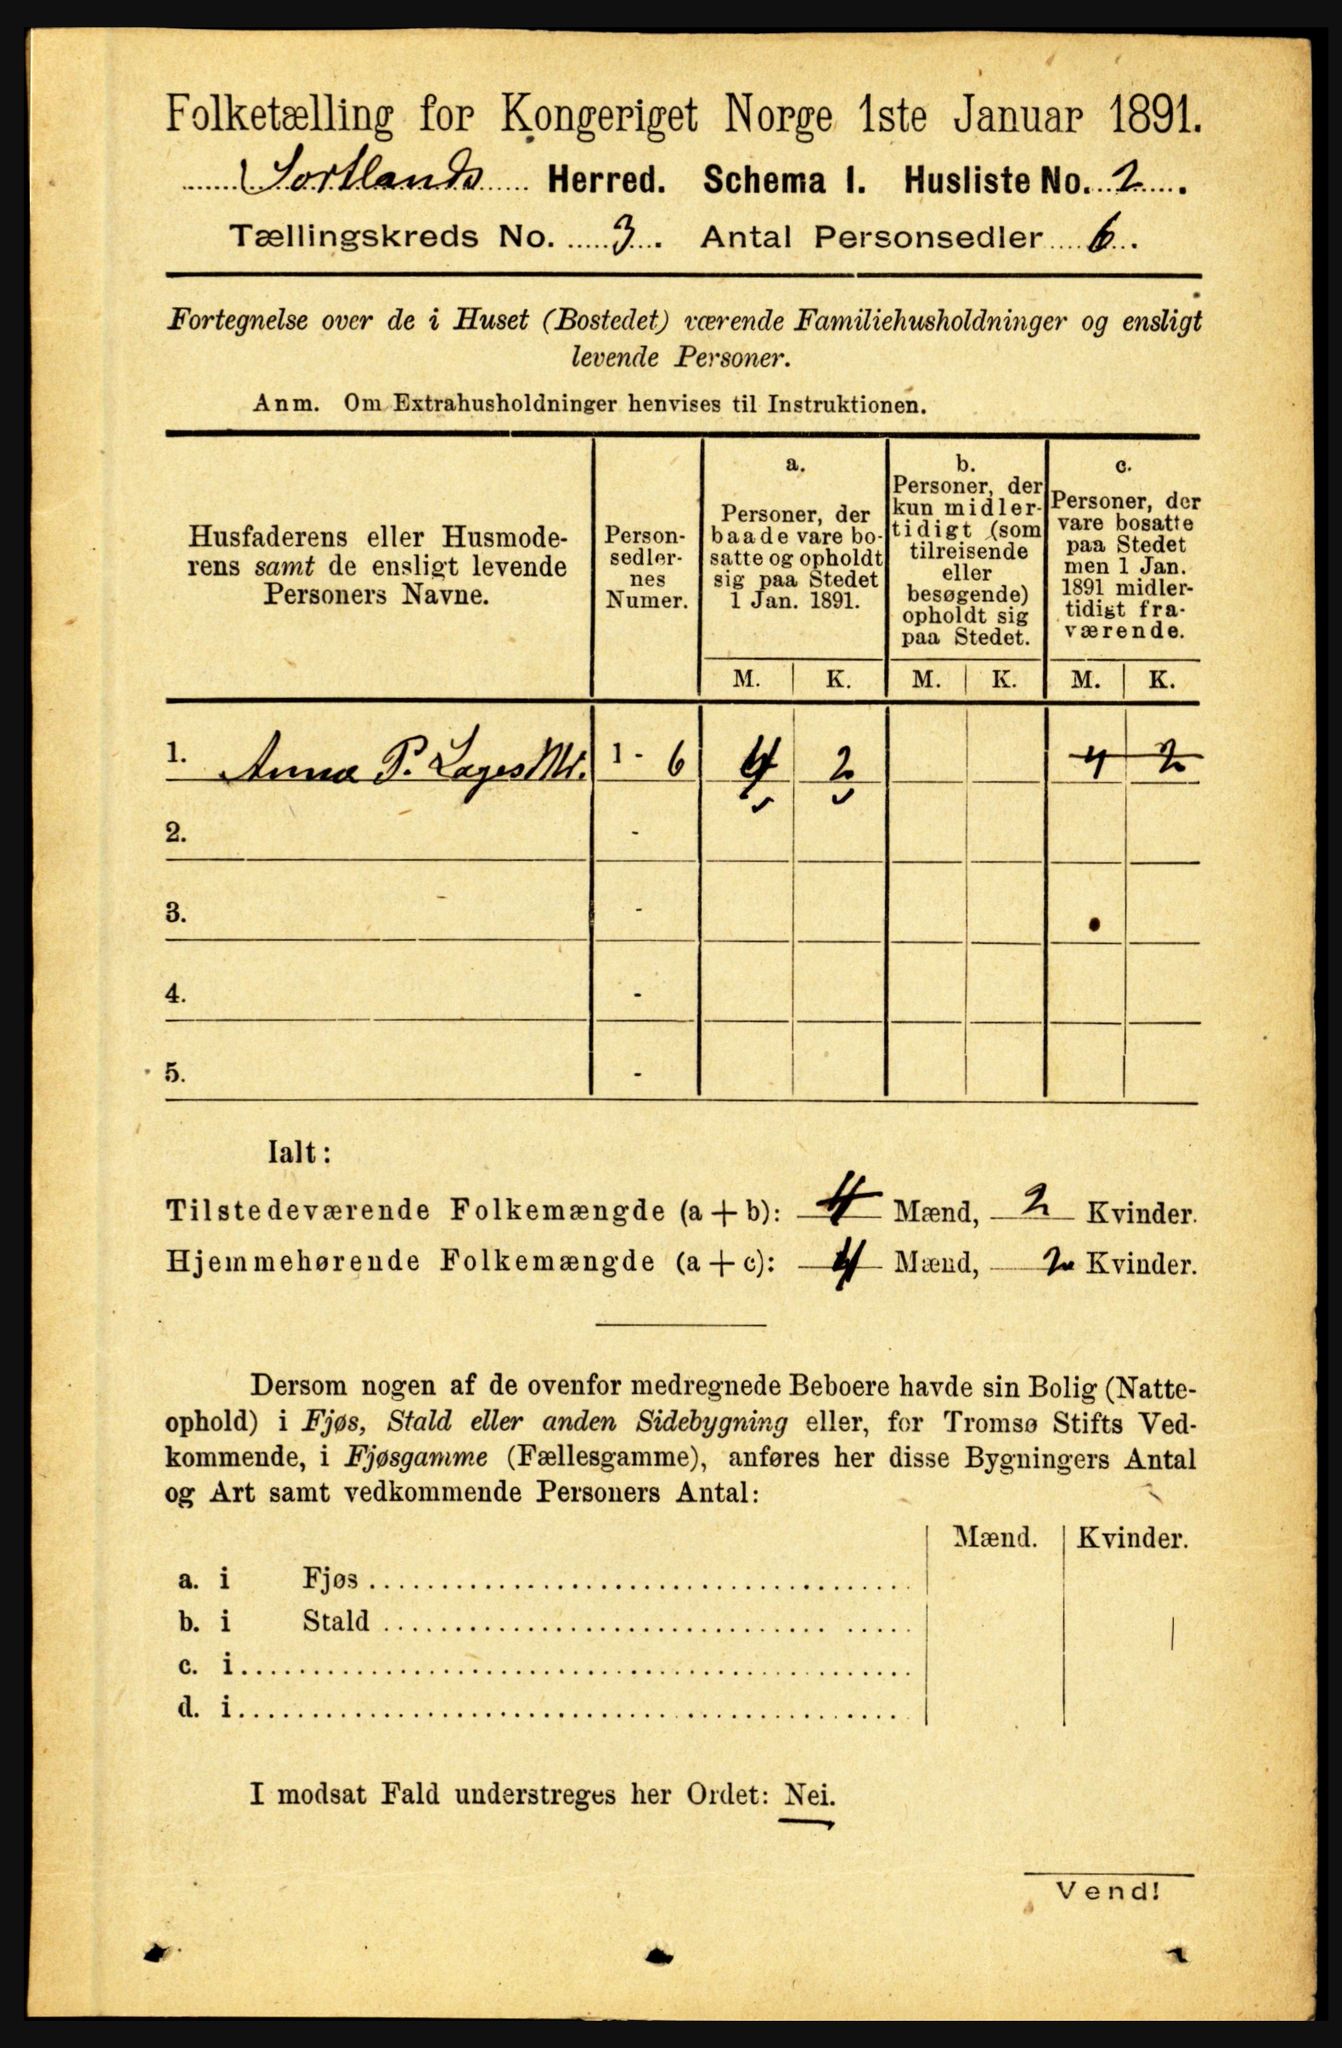 Folketælling for Kongeriget Norge 1ste Januar 1891.
Sortlands Herred. Schema I. Husliste No. 2.
Tællingskreds No. 3. Antal Personsedler 6.
Fortegnelse over de i Huset (Bostedet) værende Familiehusholdninger og ensligt
levende Personer.
Anm. Om Extrahusholdninger henvises til Instruktionen.
Husfaderens eller Husmode-
rens samt de ensligt levende
Personers Navne.
Person-
sedler-
nes
Numer.
a.
Personer, der
baade vare bo-
satte og opholdt
sig paa Stedet
1 Jan. 1891.
b.
Personer, der
kun midler-
tidigt (som
tilreisende
eller
besøgende)
opholdt sig
paa Stedet.
c.
Personer, der
vare bosatte
paa Stedet
men 1 Jan.
1891 midler-
tidigt fra-
værende.
M. K. M. K. M. K.
1. Anna P. 1 - 6 4 2 4 2
2. -
3. -
4. -
5. -
Ialt:
Tilstedeværende Folkemængde (a + b): 4 Mænd, 2 Kvinder.
Hjemmehørende Folkemængde (a + c): 4 Mænd, 2 Kvinder.
Dersom nogen af de ovenfor medregnede Beboere havde sin Bolig (Natte-
ophold) i Fjøs, Stald eller anden Sidebygning eller, for Tromsø Stifts Ved-
kommende, i Fjøsgamme (Fællesgamme), anføres her disse Bygningers Antal
og Art samt vedkommende Personers Antal:
Mænd. Kvinder.
a. i Fjøs
b. i Stald
c. i
d. i
I modsat Fald understreges her Ordet: Nei.
Vend!